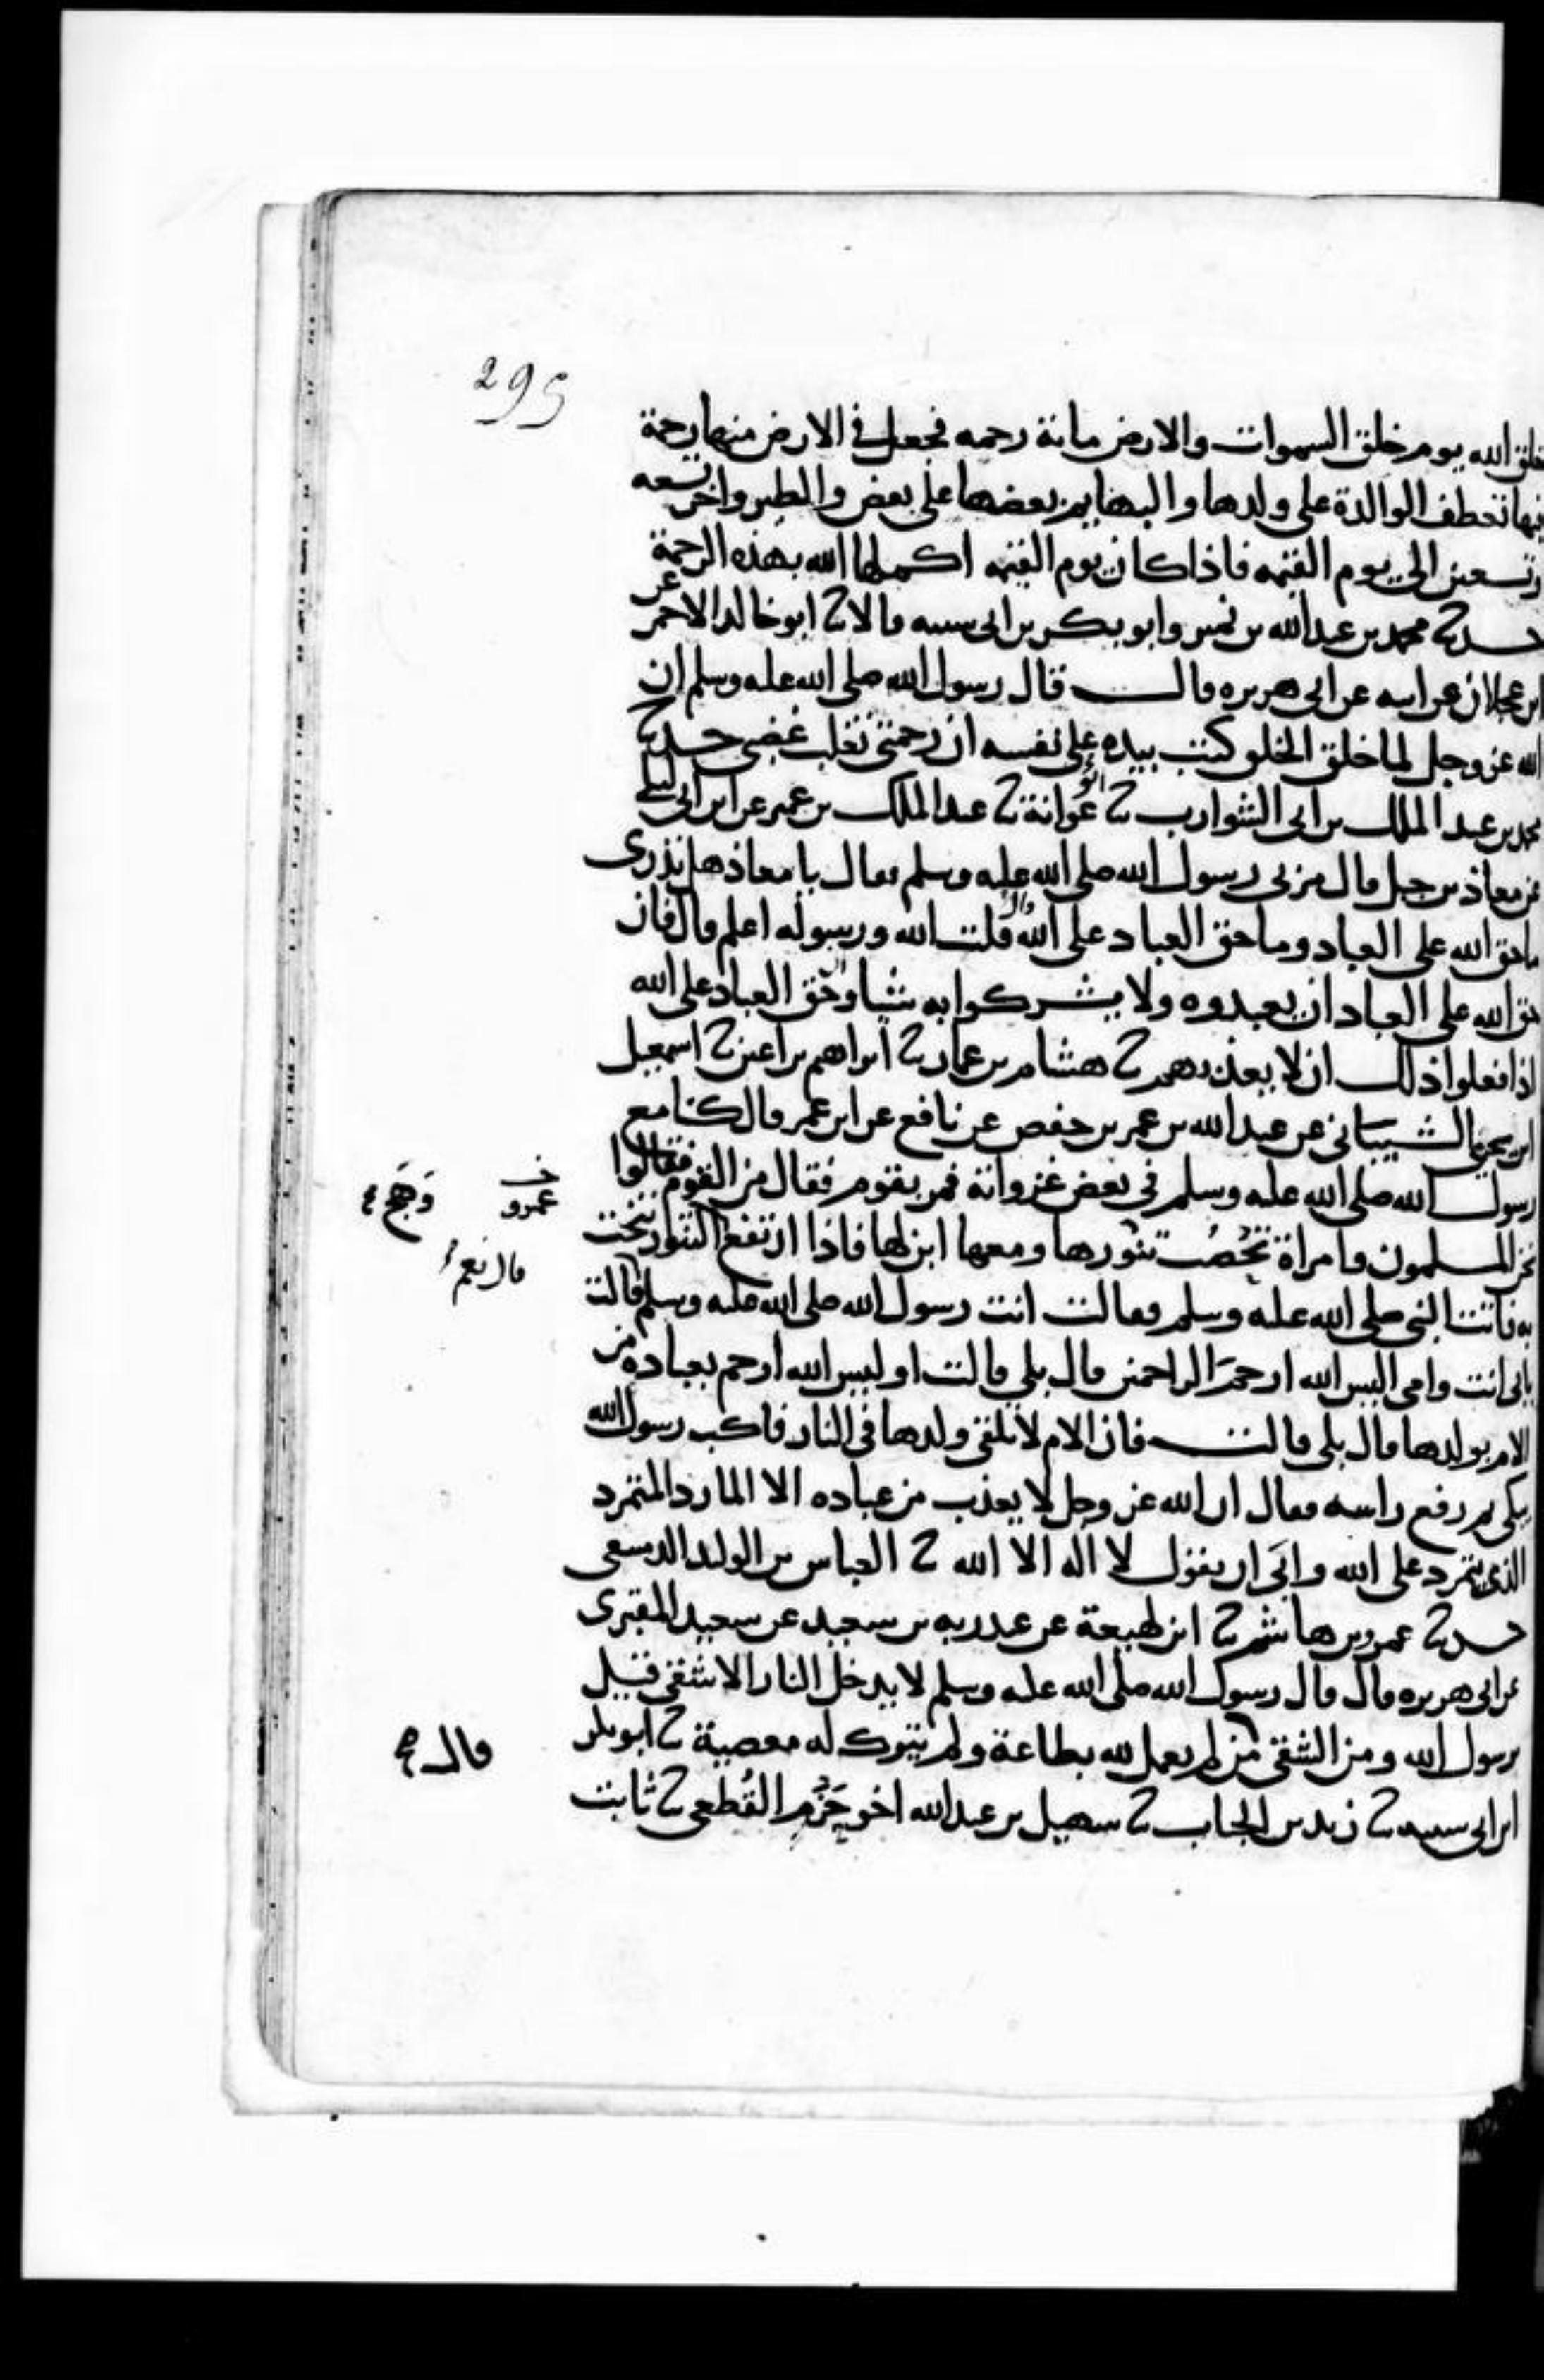 295
خلق الله يوم خلق السموات والارض مائة رحمه فجعل في الارض منها رحمة
فبها تعطف الوالدة على ولدها والبهايم بعضها على بعض والطير واخر تسعه
وتسعين الى يوم القيمه فاذا كان يوم القيمه اكملها الله بهذه الرحمة
حدثنا محمد بن عبد الله بن نمير وابو بكر بن ابى سيبه قالا ثنا ابو خالد الاحمر عن
ابن عجلان عن ابيه عن ابى هريره قال قال رسول الله صلى الله عليه وسلم ان
الله عز وجل لما خلق الخلق كتب بيده على نفسه ان رحمتى تغلب غضبى حدثنا
محمد بن عبد الملك بن ابى الشوارب ثنا ابو عوانة ثنا عبد الملك بن عمير عن ابن ابى ليلى
عن معاذ بن جبل قال مر بى رسول الله صلى الله عليه وسلم فقال يا معاذ هل تدرى
ما حق الله على العباد وما حق العباد على الله قال قلت الله ورسوله اعلم قال فان
حق الله على العباد ان يعبدوه ولا يشركوا به شيا وحق العباد على الله
اذا فعلوا ذلك ان لا يعذبهم ثنا هشام بن عمار ثنا ابراهيم بن اعين ثنا اسمعيل
ابن يحيى الشيبانى عن عبد الله بن عمر بن حفص عن نافع عن ابن عمر قال كنا مع
رسول الله صلى الله عليه وسلم فى بعض غزواته فمر بقوم فقال من القوم فقالوا
نحن المسلمون وامراة تحصب تنورها ومعها ابن لها فاذا ارتفع التنور تنحت
به فاتت النبى صلى الله عليه وسلم فقالت انت رسول الله صلى الله عليه وسلم قالت
بابى انت وامى اليس الله ارحم الراحمين قال بلى قالت اوليس الله ارحم بعباده من
الام بولدها قال بلى قالت فان الام لا تلقى ولدها فى النار فاكب رسول الله
يبكى ثم رفع راسه فقال ان الله عز وجل لا يعذب من عباده الا المارد المتمرد
الذى يتمرد على الله وابى ان يقول لا اله الا الله ثنا العباس بن الوليد الدمسقى
حدثنا عمرو بن هاشم ثنا ابن لهيعة عن عبد ربه بن سعيد عن سعيد المقبرى
عن ابى هريره قال قال رسول الله صلى الله عليه وسلم لا يدخل النار الا شقى قيل
يرسول الله ومن الشقى من لم يعمل لله بطاعة ولم يترك له معصية ثنا ابو بكر
ابن ابى سيبه ثنا زيد بن الحباب ثنا سهيل بن عبد الله اخو حزم القطعى ثنا ثابت
خ
عمرو
وهج
قال نعم
قال